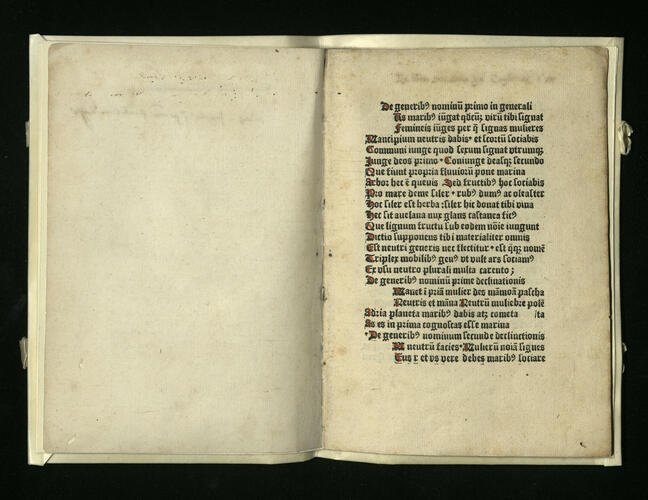 De generibꝰ nominū primo in generali
Us maribꝰ iūgat qđcūqꝫ virū tibi signat
Femineis iūges per q̄ signas mulieres
Mancipium neutris dabis· et scortū sociabis
Communi iunge quod sexum signat vtrumqꝫ
Junge deos primo · Coniunge deasqꝫ secundo
Que fiunt propria fluuiorū pone marina
Arbor hec ē queuis Sed fructibꝰ hoc sociabis
Pro mare deme siler · rubꝰ dumꝰ ac oleaster
Hoc siler est herba :siler hic donat tibi vina
Hec sit auelana nux glans castanea ficꝰ
Que lignum fructu sub eodem nōie iungunt
Dictio supponens tibi materialiter omnis
Est neutri generis nec flectitur · est q̄qꝫ nomē
Triplex mobilibꝰ genꝰ vt vult ars sociamꝰ
Ex vsu neutro plurali multa carento ;
De generibꝰ nominū prime declinationis
Manet ī prīā mulier des māmōā pascha
Neutris et māna Neutrū muliebre polē
Adria planeta maribꝰ dabis atqꝫ cometa /ta
As es in prima cognoscas esse marina
·De generibꝰ nominum secunde declinctionis
M neutrū facies·Mulierū noīā signes
Eus r et vs vere debes maribꝰ sociare